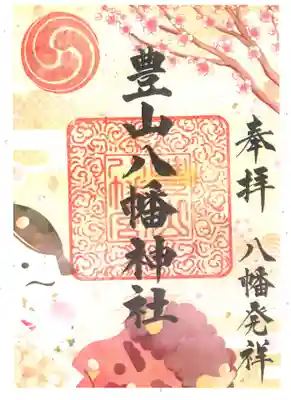 奉拝 八幡発祥
豊山八幡神社